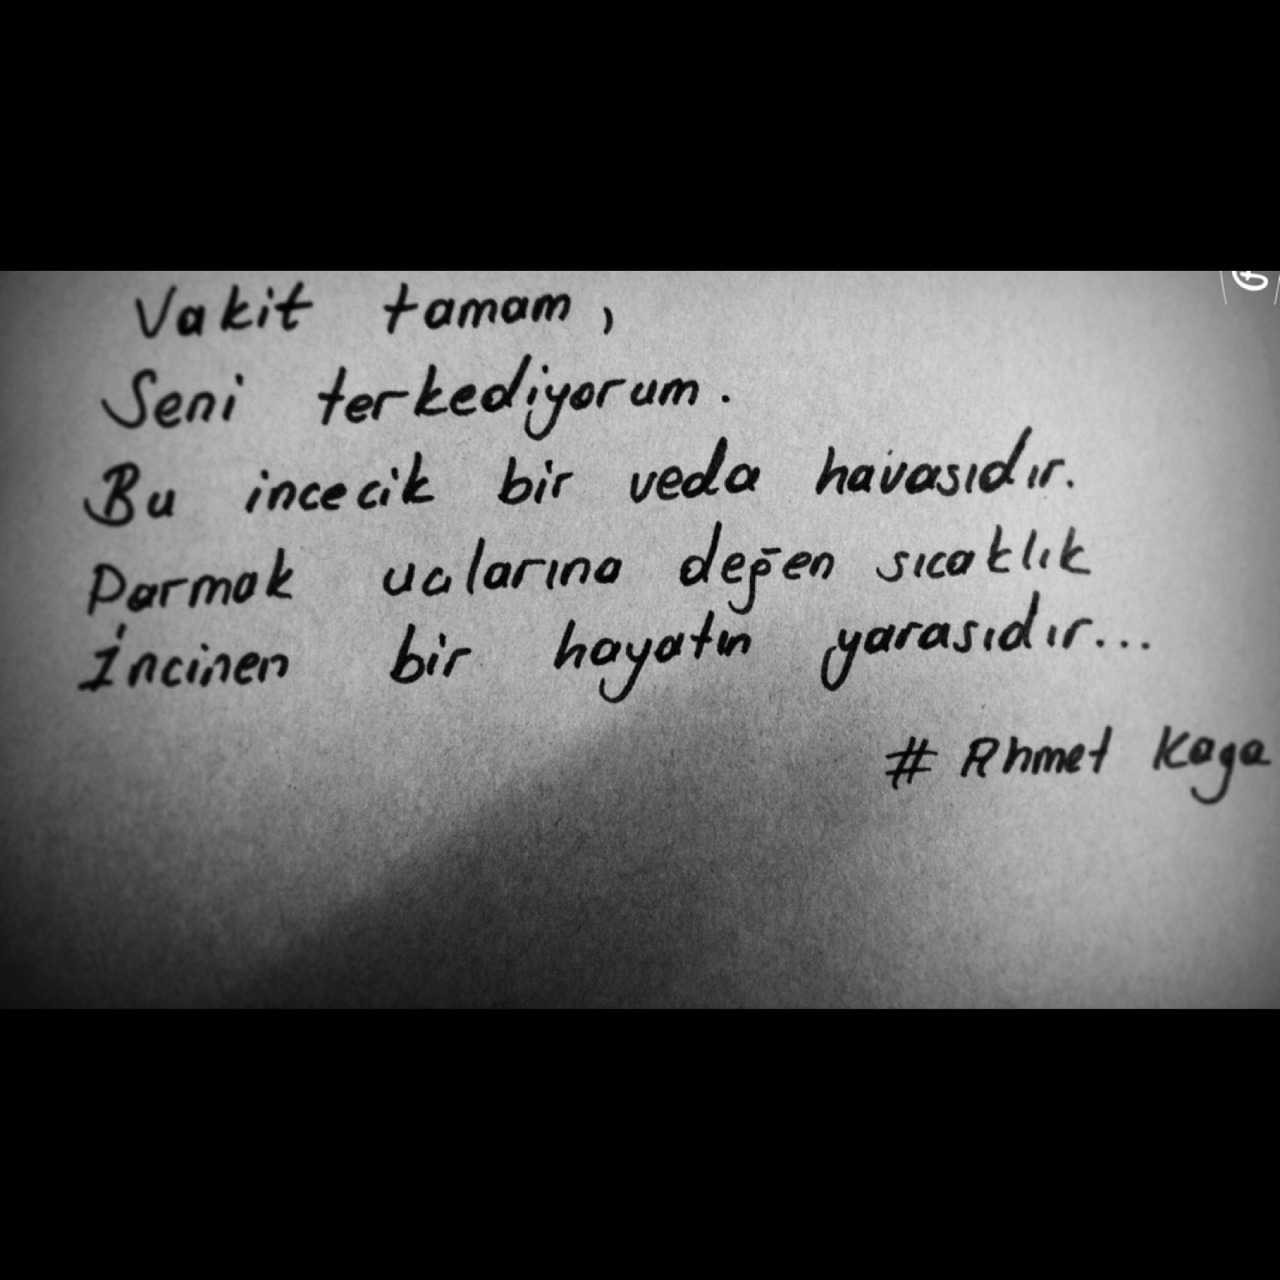 Vakit tamam,
Seni terkediyorum.
Bu incecik bir veda havasıdır.
Parmak uclarına değen sıcaklık
İncinen bir hayatın yarasıdır...
# Ahmet Kaya